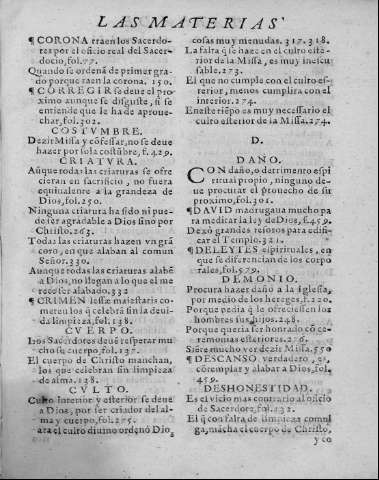 LAS MATERIAS
¶ CORONA traen los Sacerdo-
tes por el oficio real del Sacer-
docio, fol. 77.
Quando se ordenã de primer gra-
do porque raen la corona. 150.
¶ CORREGIR se deue el pro-
ximo aunque se disguste, si se
entiende que le ha de aproue-
char, fol. 302.
COSTVMBRE.
Dezir Missa y cõfessar, no se deue
hazer por sola costũbre, f. 429.
CRIATVRA.
Aũque todas las criaturas se ofre
cieran en sacrificio, no fuera
equiualente a la grandeza de
Dios, fol. 250.
Ninguna criatura ha sido ni pue-
de ser agradable a Dios sino por
Christo. 263.
Todas las criaturas hazen vn grã
coro, en que alaban al comun
Señor. 330.
Aunque todas las criaturas alabẽ
a Dios, no llegan a lo que el me
rece ser alabado. 332
¶ CRIMEN lessæ maiestatis co-
meten los q̃ celebrã sin la deui-
da limpieza, fol. 138.
CVERPO.
Los Sacerdotes deuẽ respetar mu
cho su cuerpo, fol. 137.
El cuerpo de Christo manchan,
los que celebran sin limpieza
de alma. 138.
CVLTO.
Culto interior y esterior se deue
a Dios, por ser criador del al-
ma y cuerpo, fol. 275.
ara el culto diuino ordenó Dios
cosas muy menudas. 317. 318.
La falta q̃ se haze en el culto este-
rior de la Missa, es muy inescu
sable. 273.
El que no cumple con el culto es-
terior, menos cumplira con el
interior. 274.
En este tiẽpo es muy necessario el
culto esterior de la Missa. 274.
D.
DAÑO.
CON daño, o detrimento espi
ritual propio, ninguno de-
ue procurar el prouecho de su
proximo, fol. 301.
¶ DAVID madrugaua mucho pa
ra medicar la ley de Dios, f. 459
Dexó grandes teforos para edifi-
car el Templo. 321.
¶ DELEYTES espirituales, en
que se diferencian de los corpo
rales, fol. 579.
DEMONIO.
Procura hazer daño a la Iglesia,
por medio de los hereges, f. 220.
Porque pedia q̃ le ofreciessen los
hombres sus hijos. 248.
Porque queria ser honrado cõ ce-
remonias esteriores. 276.
Siẽte mucho ver dezir Missa. 550
¶ DESCANSO verdadero, es,
cõtemplar y alabar a Dios, fol.
459.
DESHONESTIDAD.
Es el vicio mas contrario al oficio
de Sacerdote, fol. 132.
El q̃ con falta de limpieza comul
ga, mãcha el cuerpo de Christo,
y co